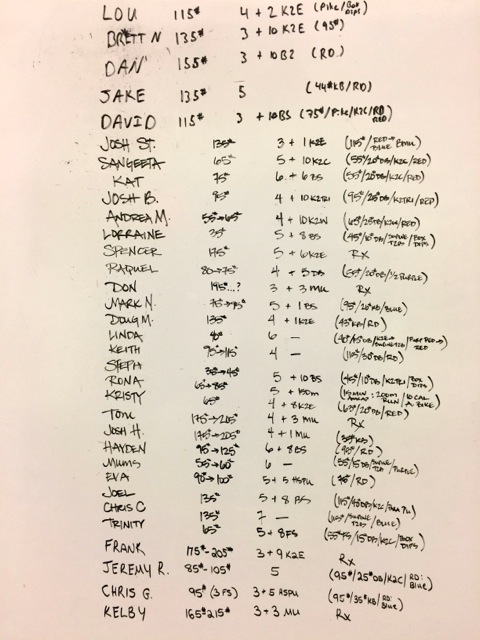 LOU 115# 4 + 2 K2E (Pike/Box Dips)
BRETT N 135# 3 + 10 K2E (95#)
DAN 155# 3 + 10 B2 (RD)
JAKE 135# 5 (44#KB/RD)
DAVID 115# 3 + 10 BS (75#/Pike/K2C/RD RED)
JOSH ST. 135# 3 + 1 K2E (115#/RED→BLUE
SANGEETA 65# 5 + 10 K2C (55#/20#DB/K2C/RED)
KAT 75# 6 + 6 BS (55#/20#DB/K2C/RED)
JOSH B. 95# 4 + 10 K2TRI (95#/25#DB/K2TRI/RED)
ANDREA M. 55→65# 4 + 10 K2W (65#/25#DB/K2W/RED)
LORRAINE 35# 5 + 8 BS (45#/10#DB/SUPINE T2B/BOX DIPS)
SPENCER 175# 5 + 6 K2E Rx
RAQUEL 80→75# 4 + 5 DB (65#/20#DB/1/2 PURPLE)
DON 195#...? 3 + 3 MU Rx
MARK N. 75→75# 5 + 1 BS (95#/26#KB/BLUE)
DOUG M. 135# 4 + 1 K2E (43#KB/RD)
LINDA 6 —
KEITH 95→115# 4 — (115#/30#DB/RD)
STEPH 35#→45#
RONA 65→85# 5 + 10 BS (45#/10#DB/K2TRI/BOX DIPS)
KRISTY 65# 5 + 150m (15 MIN AMRAP: 200m RUN/10 CAL A. BIKE)
TOM 175→205# 4 + 8 K2E (65#/20#DB/RED)
JOSH H. 175→205# 4 + 3 MU Rx
HAYDEN 95→125# 4 + 1 MU (35#KB)
MUMS 55→60# 6 + 8 BS (95#/RD)
EVA 90→100# 6 — (55/15DB/SUPINE T2B/PURPLE)
JOEL 5 + 5 HSPU (75#/RD)
CHRIS C 135# 5 + 8 BS
TRINITY 135# 7 — (115#/SUPINE T2B/BLUE)
65# 5 + 8 FS (55#FS/15#DB/K2C/BOX DIPS)
FRANK 175#-205# 3 + 9 K2E Rx
JEREMY R. 85#-105# 5 (95#/25#DB/K2C/RD: BLUE)
CHRIS G. 95# (3 FS) 3 + 5 HSPU (95#/35#KB/RD: BLUE)
KELBY 165#215# 3 + 3 MU Rx